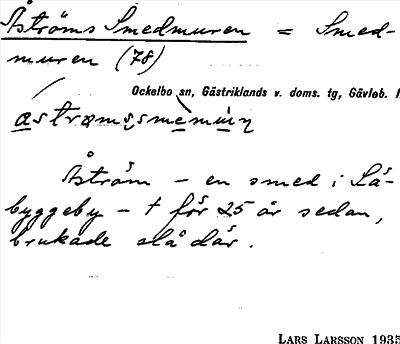 Åströms Smedmuren = Smed-
muren (78)
Ockelbo sn, Gästriklands v. doms. tg, Gävleb.
Åström – en smed i Lå-
byggeby – † för 25 år sedan,
brukade slå där.
LARS LARSSON 1935